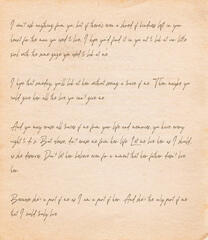 I can't ask anything from you, but if there's even a shred of kindness left in your
heart for the man you used to love, I hope you'd find it in you not to look at our little
girl with the same gaze you used to look at me.
I hope that someday, you'll look at her without seeing a trace of me. Then maybe you
could give her all the love you can't give me.
And you may erase all traces of me from your life and memories, you have every
right to do so. But please, don't erase me from her life. Let me love her as I should,
as she deserves. Don't let her believe even for a moment that her father doesn't love
her.
Because she's a part of me as I am a part of her. And she's the only part of me
that I could truly love.